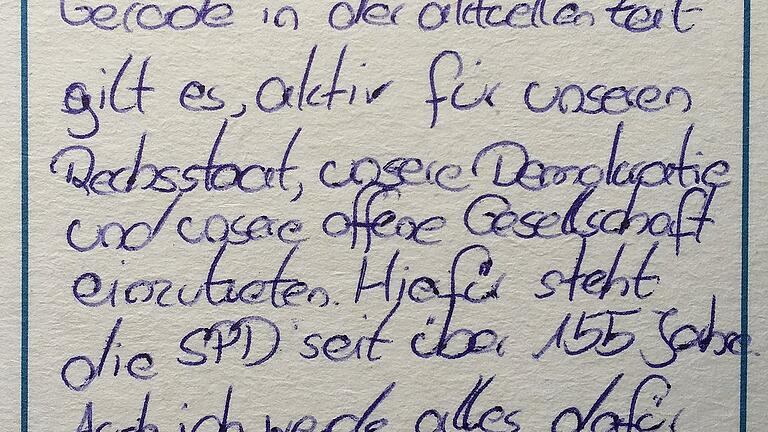 Gerade in der aktuellen Zeit
gilt es, aktiv für unseren
Rechsstaat, unsere Demokratie
und unsere offene Gesellschaft
einzutreten. Hierfür steht
die SPD seit über 155 Jahre.
Auch ich werde alles dafür